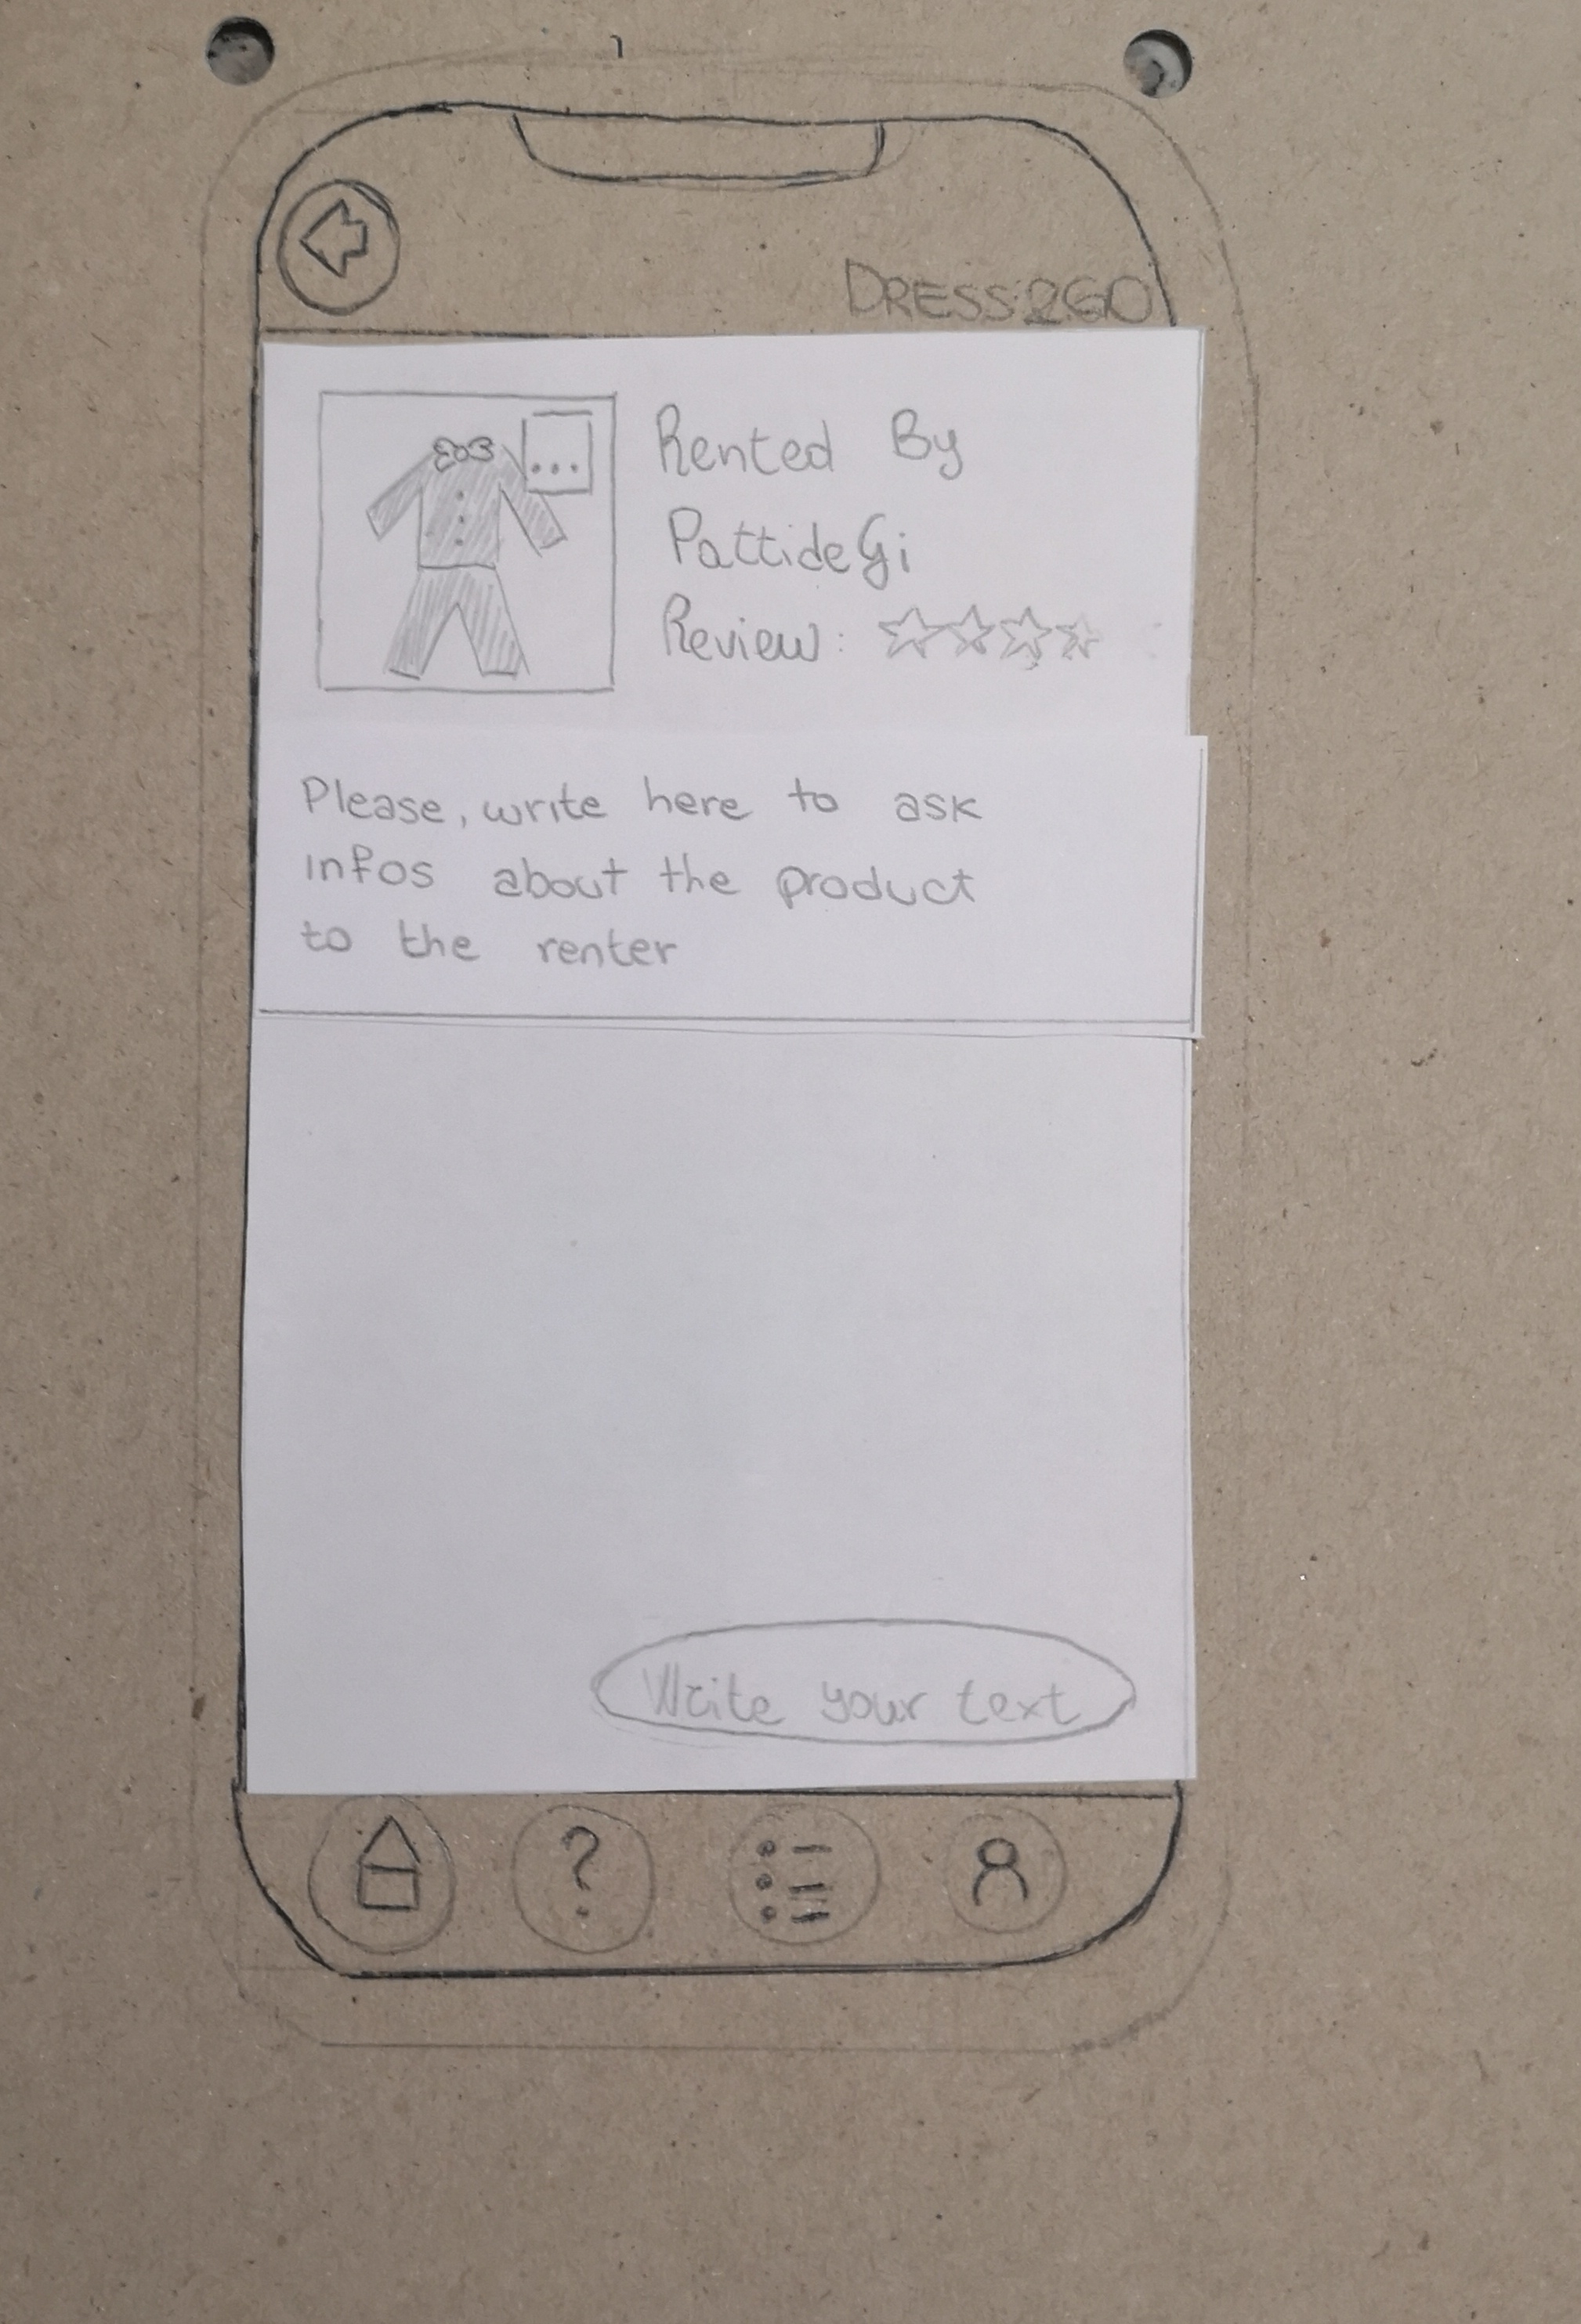 DRESS2GO
Rented By
PattideGi
Review:
Please, write here to ask
infos about the product
to the renter
Write your text
?